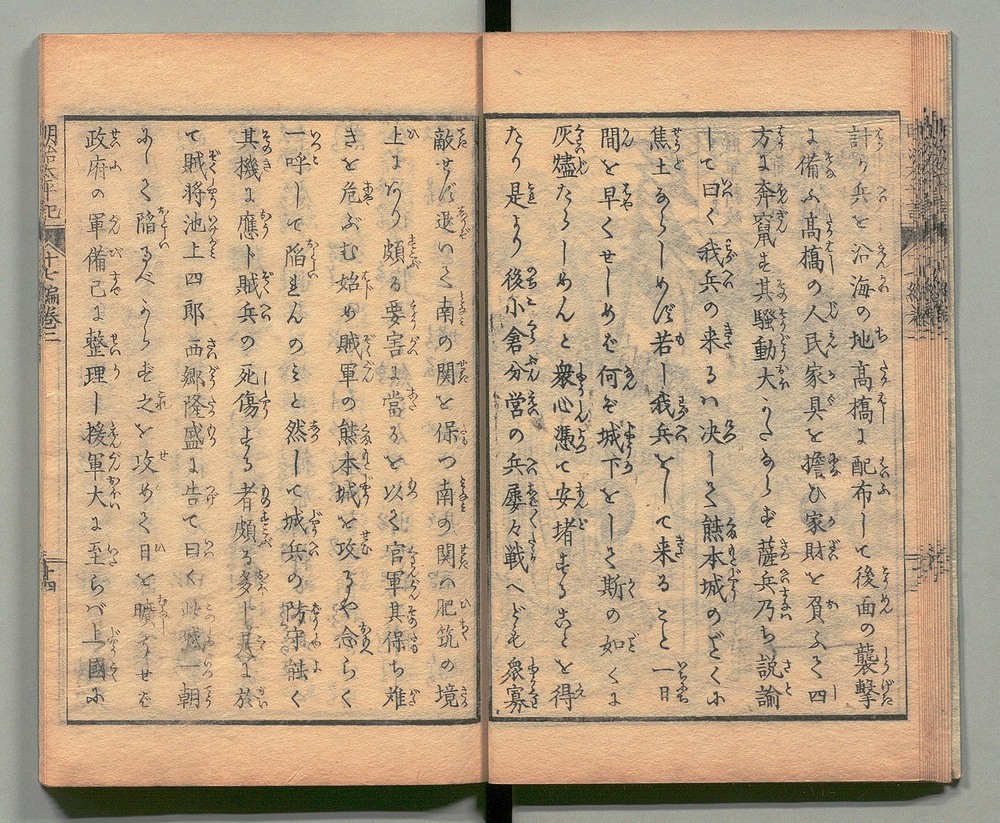 計り兵を沿海の地高橋に配布して後面の襲撃
に備ふ高橋の人民家具を擔ひ家財を負ふて四
方に奔竄す其騒動大かたならず薩兵乃ち説諭
して曰く我兵の来るハ决して熊本城のごとくに
焦土ならしめず若し我兵をして来ること一日
間を早くせしめバ何ぞ城下をして斯の如くに
灰燼たらしめんと衆心憑て安堵することを得
たり是より後小倉分営の兵屡々戦へども衆寡
敵せず退いて南の関を保つ南の関ハ肥筑の境
上にあり頗る要害に當るを以て官軍其保ち難
きを危ぶむ始め賊軍の熊本城を攻るや念らく
一呼して陥れんのミと然して城兵の防守能く
其機に應ト賊兵の死傷する者頗る多し是に於
て賊将池上四郎西郷隆盛に告て曰く此城一朝
にして陥るべからず之を攻めて日を曠うせバ
政府の軍備已に整理し援軍大に至らバ上國に
明治太平記
十七編巻二
十四